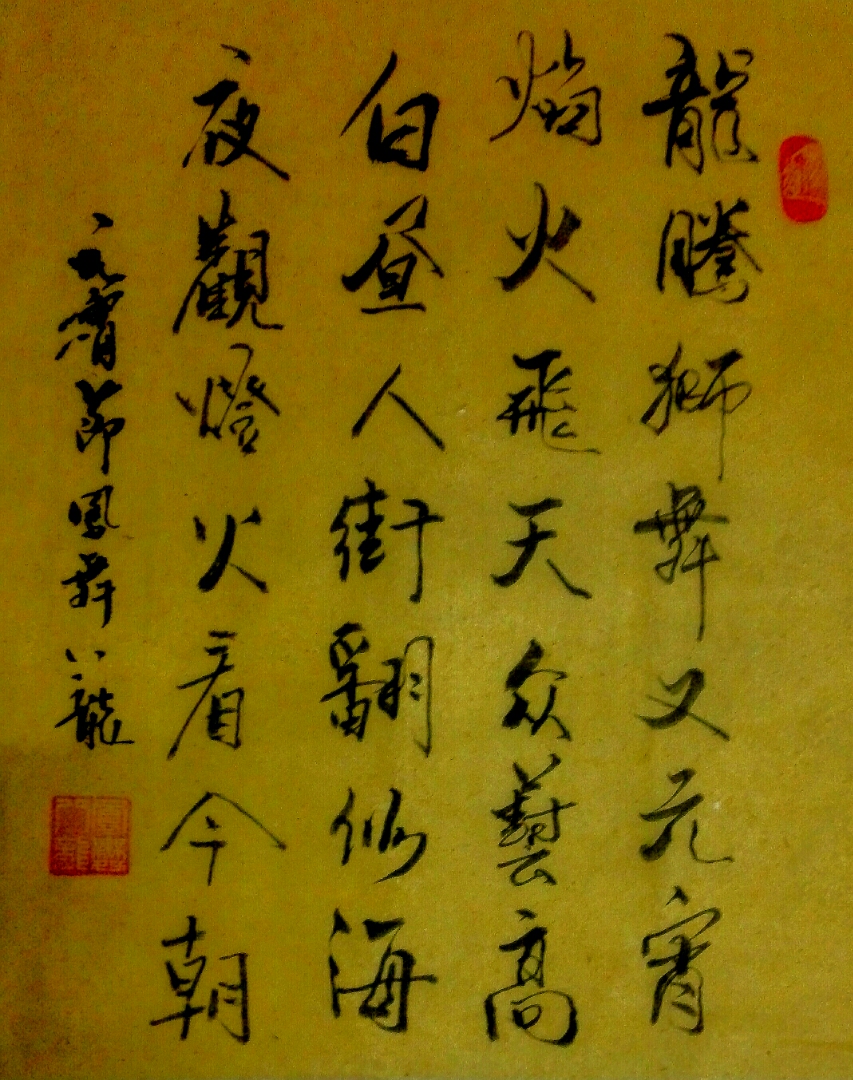 龍騰獅舞又元宵
焰火飛天众藝高
白昼人街翻似海
夜觀燈火看今朝
元宵節鳳舞八龍